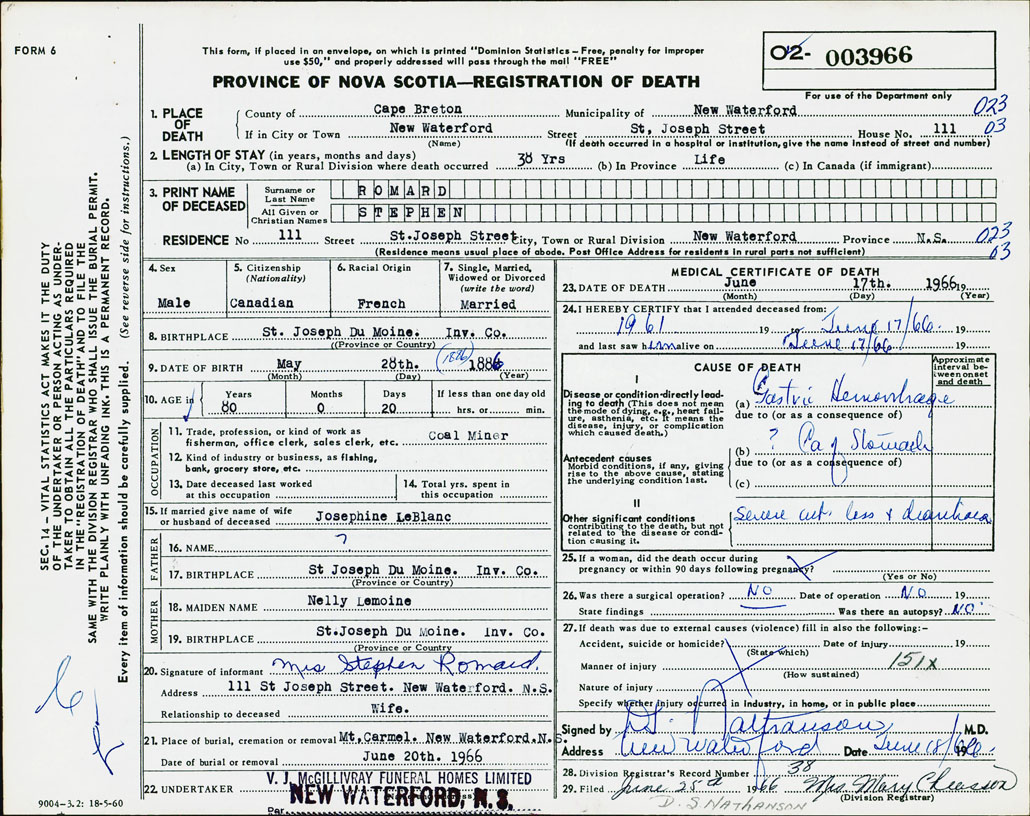 FORM 6
This form, if placed in an envelope, on which is printed "Dominion Statistics – Free, penalty for improper
use $50," and properly addressed will pass through the mail "FREE"
02- 003966
PROVINCE OF NOVA SCOTIA—REGISTRATION OF DEATH
For use of the Department only
1. PLACE OF DEATH County of Cape Breton Municipality of New Waterford 023
If in City or Town New Waterford Street St, Joseph Street House No. 111 03
(Name) (If death occurred in a hospital or institution, give the name instead of street and number)
2. LENGTH OF STAY (in years, months and days)
(a) In City, Town or Rural Division where death occurred 38 Yrs (b) In Province Life (c) In Canada (if immigrant)
3. PRINT NAME OF DECEASED
Surname or Last Name ROMARD
All Given or Christian Names STEPHEN
RESIDENCE No 111 Street St.Joseph Street City, Town or Rural Division New Waterford Province N.S. 023
(Residence means usual place of abode. Post Office Address for residents in rural parts not sufficient) 03
4. Sex Male
5. Citizenship (Nationality) Canadian
6. Racial Origin French
7. Single, Married, Widowed or Divorced (write the word) Married
8. BIRTHPLACE St. Joseph Du Moine. Inv. Co.
(Province or Country)
9. DATE OF BIRTH May 28th. (1886) 1886
(Month) (Day) (Year)
10. AGE in Years 80 Months 0 Days 20 If less than one day old hrs. or min.
OCCUPATION
11. Trade, profession, or kind of work as
fisherman, office clerk, sales clerk, etc. Coal Miner
12. Kind of industry or business, as fishing,
bank, grocery store, etc.
13. Date deceased last worked at this occupation
14. Total yrs. spent in this occupation
15. If married give name of wife
or husband of deceased Josephine LeBlanc
FATHER
16. NAME ?
17. BIRTHPLACE St Joseph Du Moine. Inv. Co.
(Province or Country)
MOTHER
18. MAIDEN NAME Nelly Lemoine
19. BIRTHPLACE St.Joseph Du Moine. Inv. Co.
(Province or Country)
20. Signature of informant Mrs Stephen Romard.
Address 111 St Joseph Street. New Waterford. N.S.
Relationship to deceased Wife.
21. Place of burial, cremation or removal Mt.Carmel. New Waterford.N.S.
Date of burial or removal June 20th. 1966
22. UNDERTAKER V. J. McGILLIVRAY FUNERAL HOMES LIMITED
NEW WATERFORD, N. S.
Per
MEDICAL CERTIFICATE OF DEATH
23. DATE OF DEATH June 17th. 1966 19
(Month) (Day) (Year)
24. I HEREBY CERTIFY that I attended deceased from:
1961 19 to June 17/66 19
and last saw him alive on June 17/66 19
CAUSE OF DEATH
Approximate interval between onset and death
I
Disease or condition directly leading to death (This does not mean the mode of dying, e.g., heart failure, asthenia, etc. It means the disease, injury, or complication which caused death.)
(a) Gastric Hemorrhage
due to (or as a consequence of)
Antecedent causes
Morbid conditions, if any, giving rise to the above cause, stating the underlying condition last.
(b) ? Ca of Stomach
due to (or as a consequence of)
(c)
II
Other significant conditions
contributing to the death, but not related to the disease or condition causing it.
Severe wt. loss & diarrhoea
25. If a woman, did the death occur during
pregnancy or within 90 days following pregnancy?
(Yes or No)
26. Was there a surgical operation? NO Date of operation NO 19
State findings Was there an autopsy? NO
27. If death was due to external causes (violence) fill in also the following:–
Accident, suicide or homicide? Date of injury 19
(State which)
Manner of injury 151x
(How sustained)
Nature of injury
Specify whether injury occurred in industry, in home, or in public place
Signed by D.S. Nathanson M.D.
Address New Waterford Date June 18/66 19
28. Division Registrar's Record Number 38
29. Filed June 25th 1966 Mrs. Mary Chiasson
(Division Registrar)
D. S. NATHANSON
9004-3.2: 18-5-60
SEC. 14 – VITAL STATISTICS ACT MAKES IT THE DUTY
OF THE UNDERTAKER OR PERSON ACTING AS UNDER-
TAKER TO OBTAIN ALL THE PARTICULARS REQUIRED
IN THE "REGISTRATION OF DEATH" AND TO FILE THE
SAME WITH THE DIVISION REGISTRAR WHO SHALL ISSUE THE BURIAL PERMIT.
WRITE PLAINLY WITH UNFADING INK. THIS IS A PERMANENT RECORD.
Every item of information should be carefully supplied. (See reverse side for instructions.)